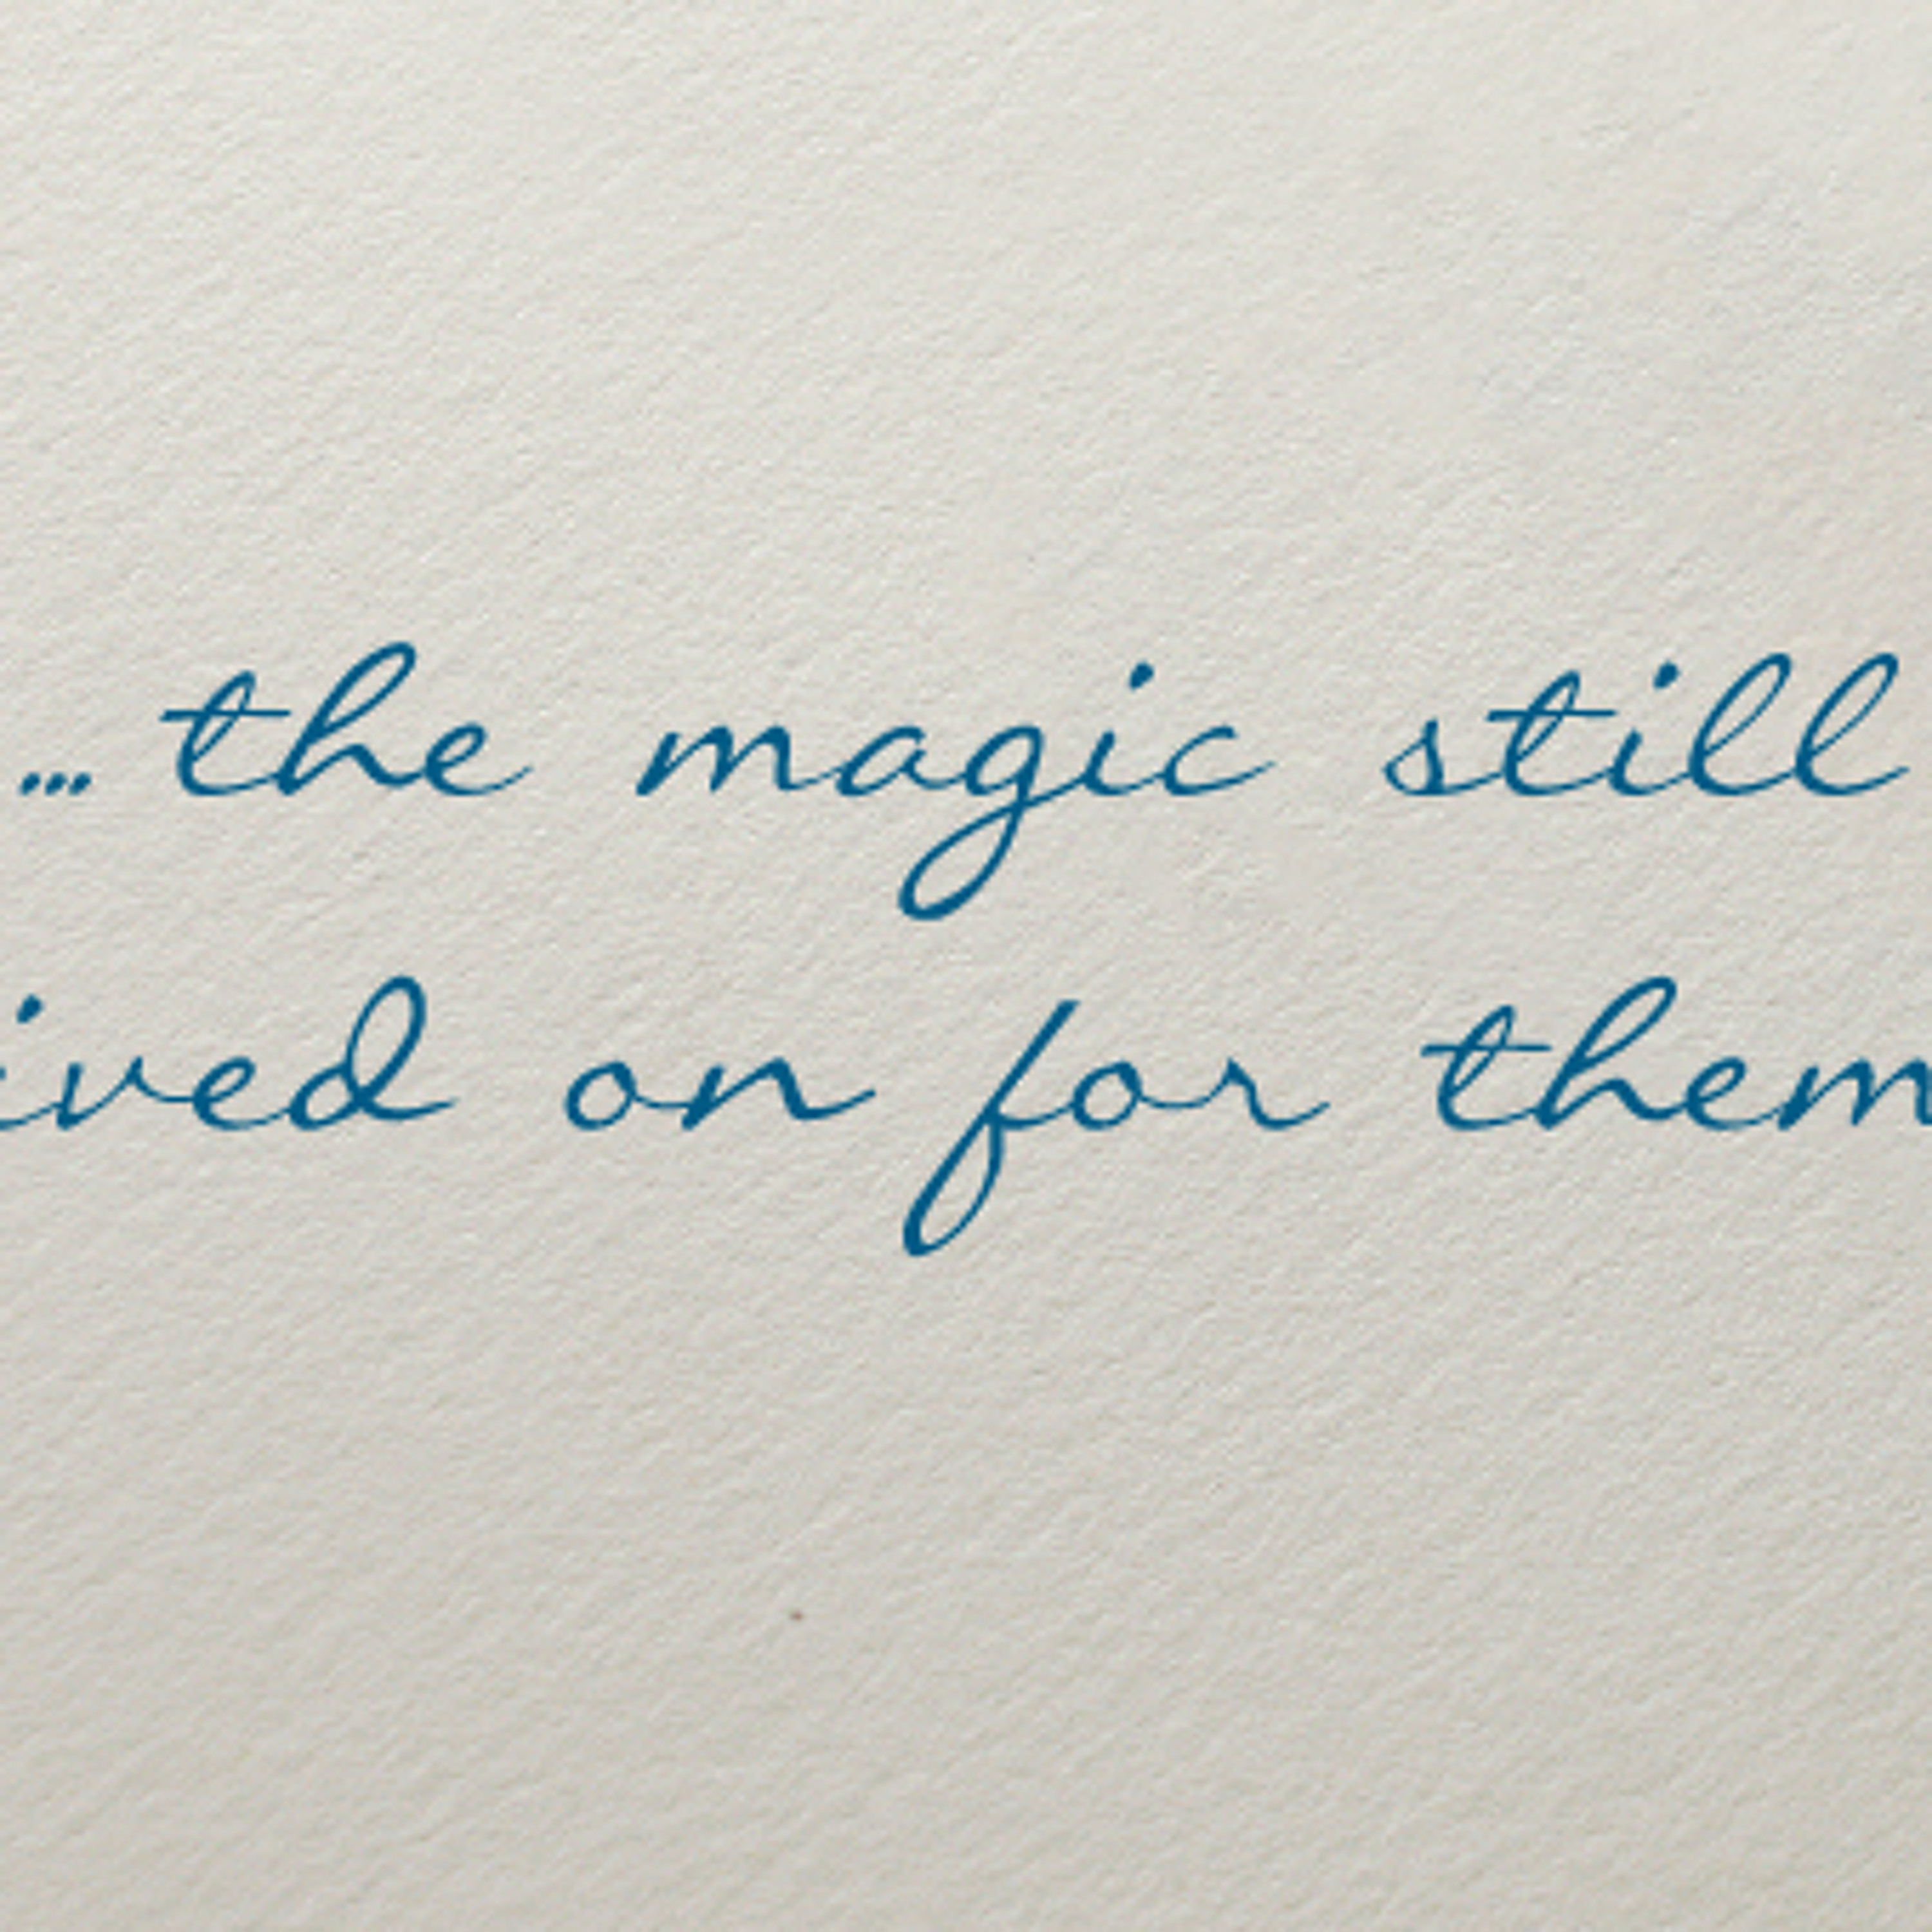 ... the magic still
ived on for them